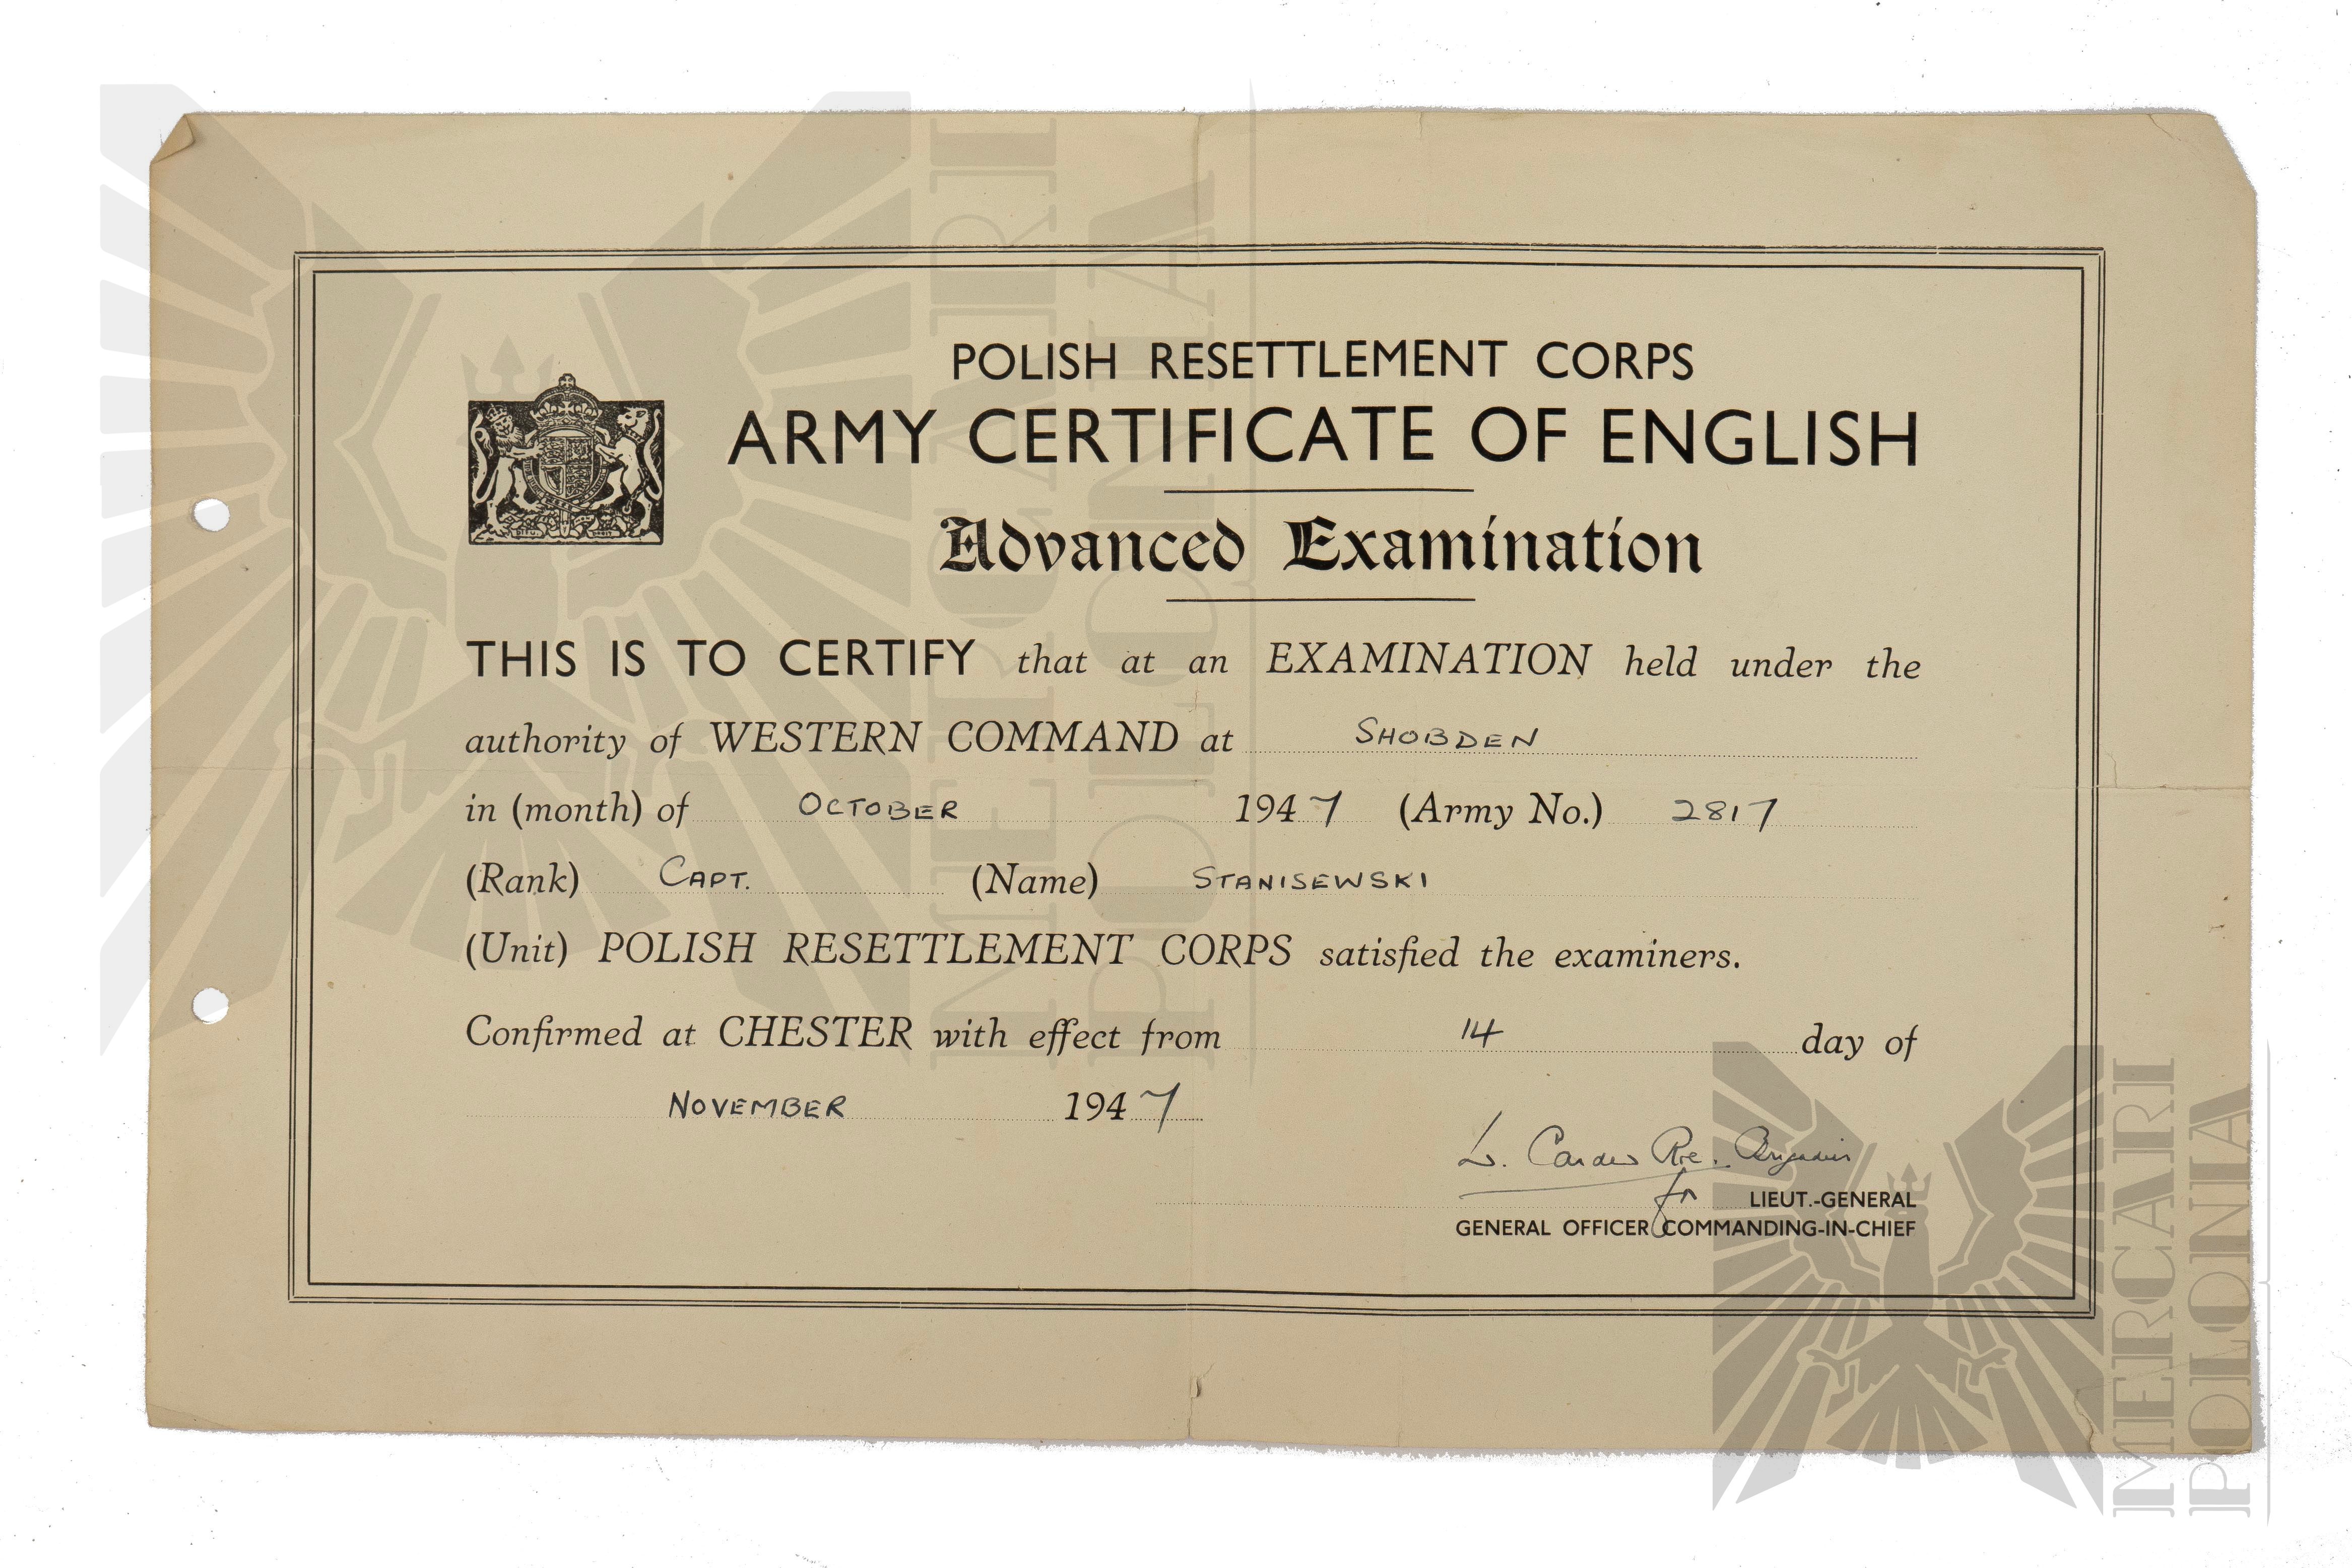 POLISH RESETTLEMENT CORPS
ARMY CERTIFICATE OF ENGLISH
Advanced Examination
THIS IS TO CERTIFY that at an EXAMINATION held under the
authority of WESTERN COMMAND at SHOBDEN
in (month) of OCTOBER 1947 (Army No.) 2817
(Rank) CAPT. (Name) STANISEWSKI
(Unit) POLISH RESETTLEMENT CORPS satisfied the examiners.
Confirmed at CHESTER with effect from 14 day of
NOVEMBER 1947
L. Brigadier
for LIEUT.-GENERAL
GENERAL OFFICER COMMANDING-IN-CHIEF
MERCARI
POLONIA
MERCARI
POLONIA